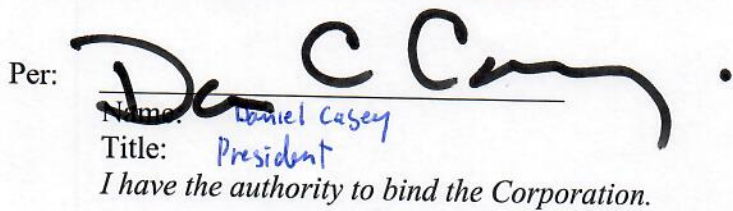 Per: Dan C Casey
Name: Daniel Casey
Title: President
I have the authority to bind the Corporation.